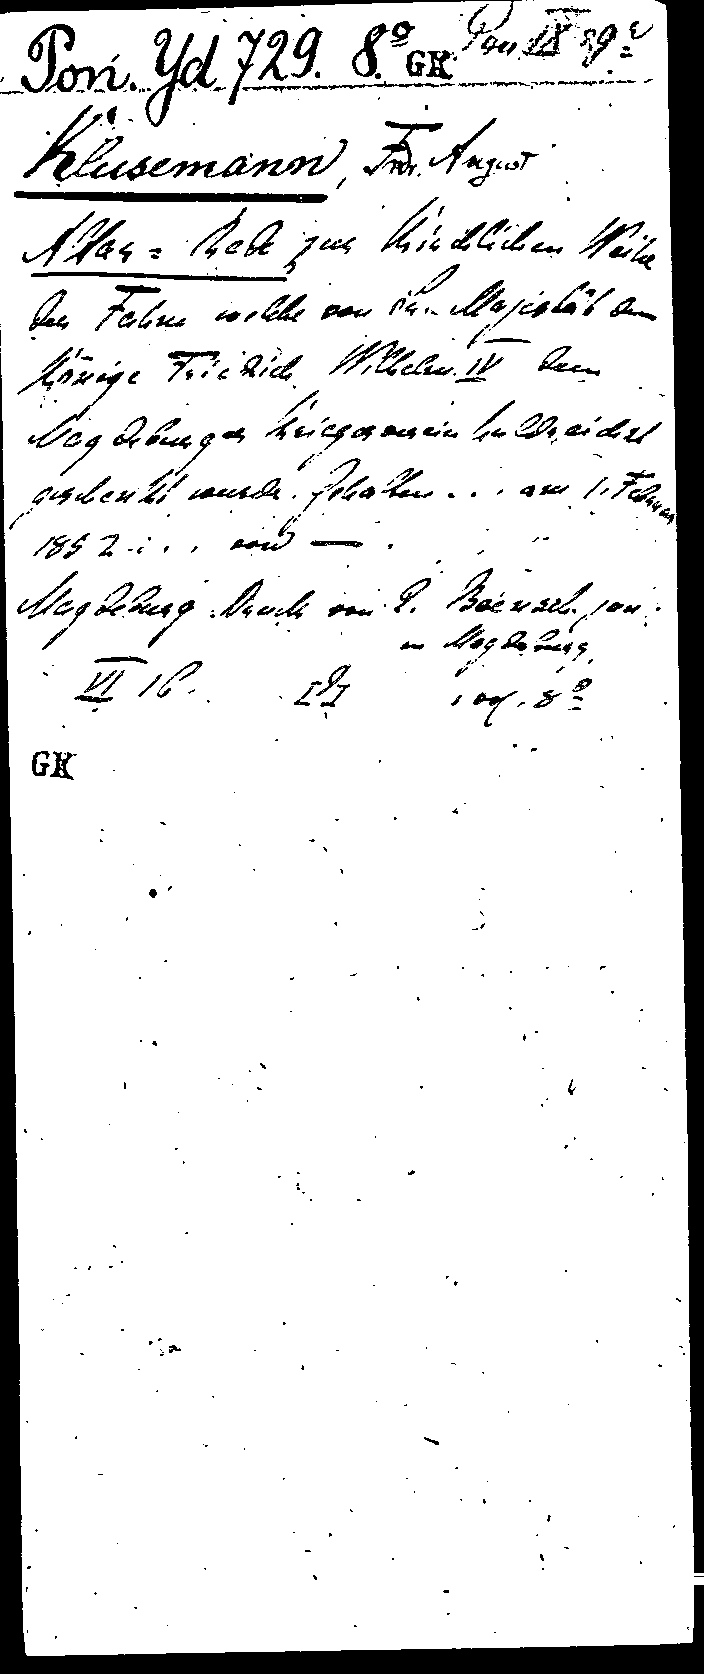 Pon. Yd 729. 8º GK Pon IX 59
Klusemann, Frdr. August
Altar = Rede zur kirchlichen Weihe
der Fahne welche von Sr. Majestät dem
Könige Friedrich Wilhelm IV dem
Magdeburger Kriegerverein huldreichst
geschenkt wurde. Gehalten . . . am 1. Februar
1852 . . . von — .
Magdeburg. Druck von E. Baensch jun.
in Magdeburg
VI 16. 8º
GK